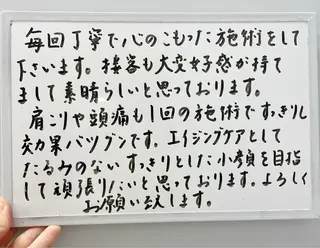 毎回丁寧で心のこもった施術をして
下さいます。接客も大変好感が持て
まして素晴らしいと思っております。
肩こりや頭痛も1回の施術ですっきりし
効果バツグンです。エイジングケアとして
たるみのないすっきりとした小顔を目指
して頑張りたいと思っております。よろしく
お願い致します。